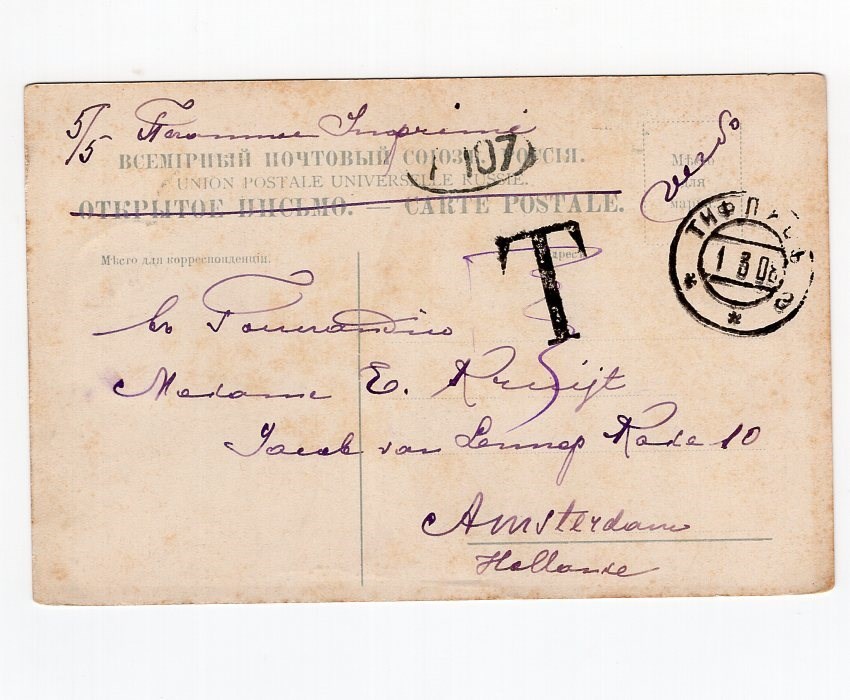 5/5 Imprimé
107
ВСЕМІРНЫЙ ПОЧТОВЫЙ СОЮЗЪ. РОССІЯ.
UNION POSTALE UNIVERSELLE RUSSIE.
ОТКРЫТОЕ ПИСЬМО. — CARTE POSTALE.
Мѣсто
для
марки
ТИФЛИСЪ
1 3 08
T
Мѣсто для корреспонденціи.
Адресъ
въ Голландію
Madame E. Kruijt
Jacob van Lennep Kade 10
Amsterdam
Hollande